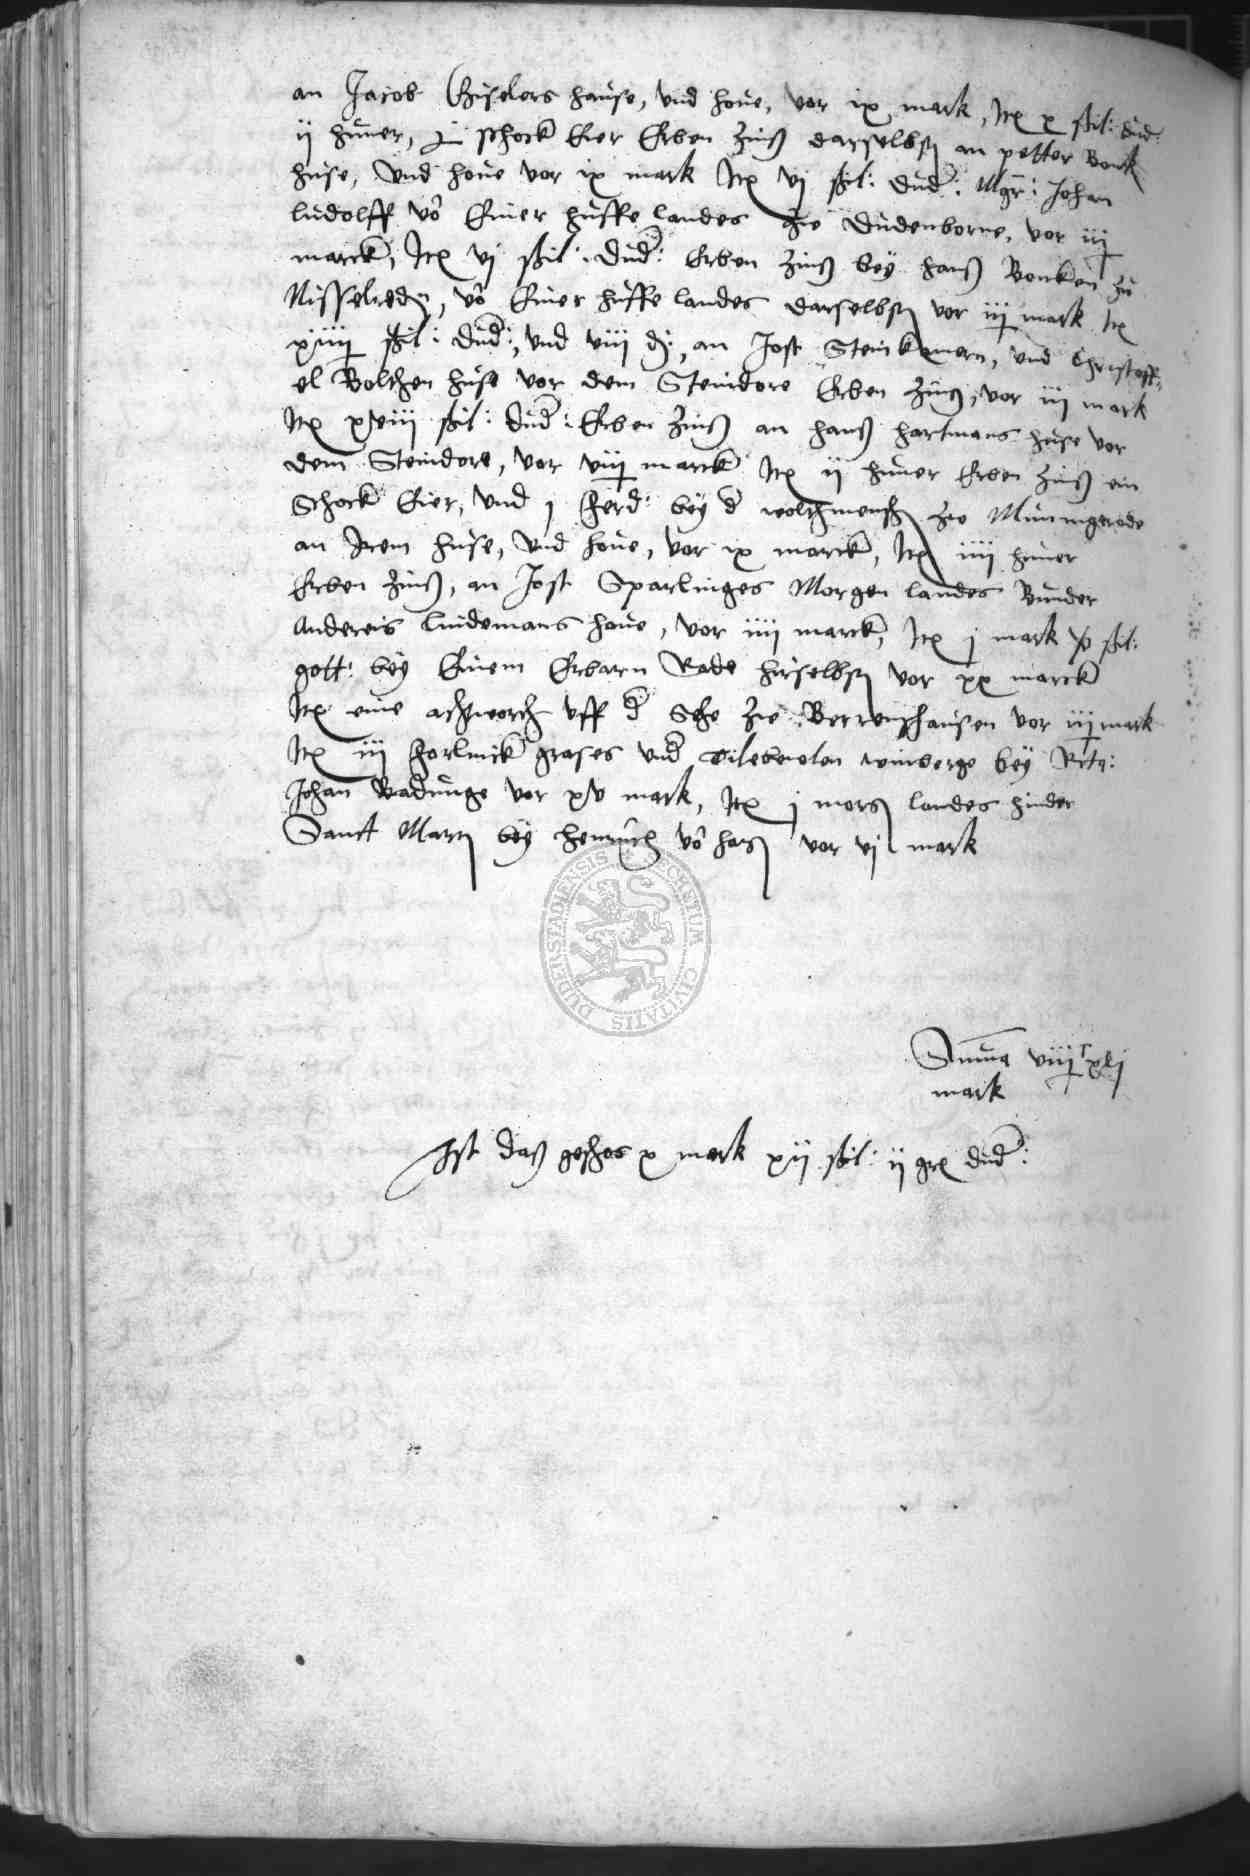 an Jacob Giselers hause, vnd houe, vor ix mark, Itē x ßil: dud:
ij huner, j schock Eier Erben Zinß darselbst an petter Bonk
huse, vnd houe vor ix mark Itē vj ßil: dud: Mgr: Johan
ludolff võ Einer huffe landes zu Dudenborne, vor iij
marck, Itē vj ßil: Dud: Erben Zinß bey hanß Bonken zu
Nisselreden, võ Einer huffe landes darselbst vor iij mark Itē
xiiij ßil: Dud:, vnd viii d:, an Jost Steinkmern, vnd Christoff
el Bolthen huse vor dem Steindore Erben Zinß, vor iij mark
Itē xviii ßil: dud: Erben Zinß an hanß hartmans huse vor
dem Steindore, vor viij marck Itē ij huner Erben Zinß ein
Schock Eier, vnd j ferd: bey d woltmensch zu Minnigerode
an Irem huse, vnd houe, vor ix marck, Itē iiii huner
Erben Zinß, an Jost Sparlinges Morgen landes Bunder
Andereis lindemans houe, vor iiii marck, Itē j mark x ßil:
gott: bey Einem Erbarn Rade hirselbst vor xx marck
Itē eine achtworch vff d Sehe zu Berrenshausen vor iij mark
Itē iij forlinck grases vnd winberge bey Rctr:
Johan Badunge vor xv mark, Itē j morg landes hinder
Sanct Mart bey Henrich võ harß vor vj mark
Suma viij^c xlj
mark
Ist daß geschos x mark xij ßil: ij grē dud: